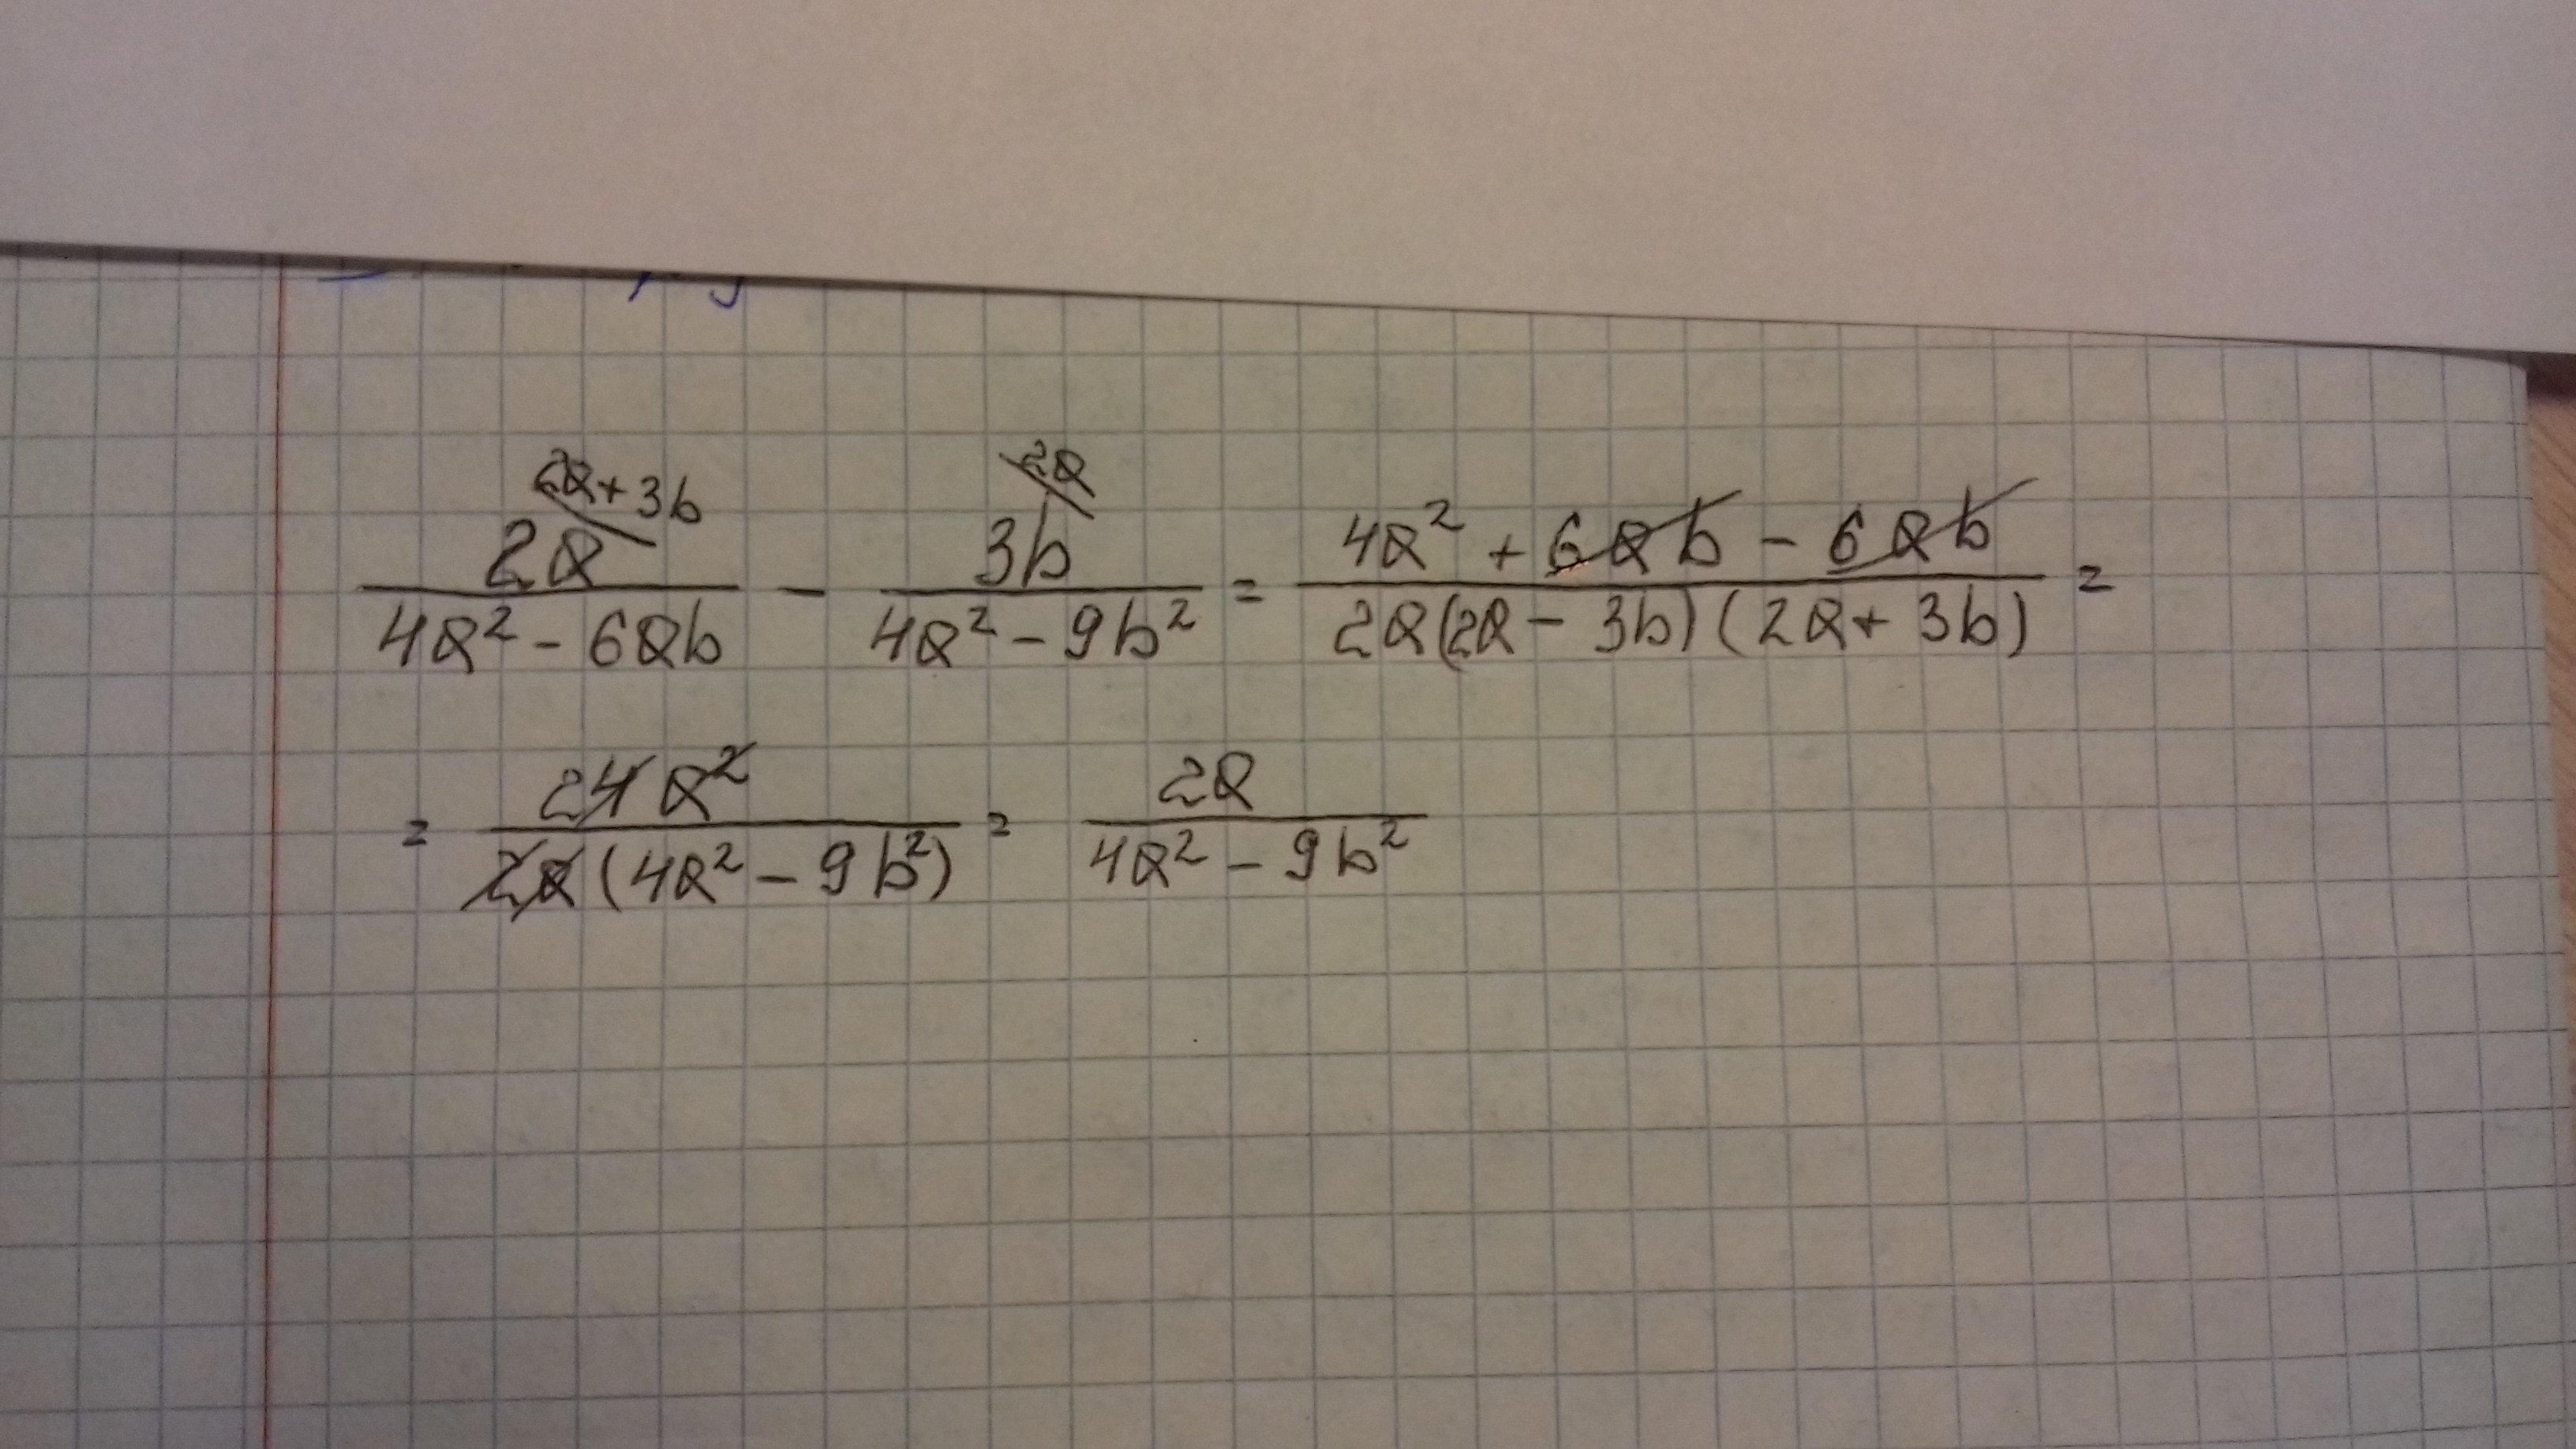 2a^(2a+3b) / (4a² - 6ab) - 3b^(2a) / (4a² - 9b²) = (4a² + 6ab - 6ab) / (2a(2a - 3b)(2a + 3b)) =
= 24a² / (2a(4a² - 9b²)) = 2a / (4a² - 9b²)